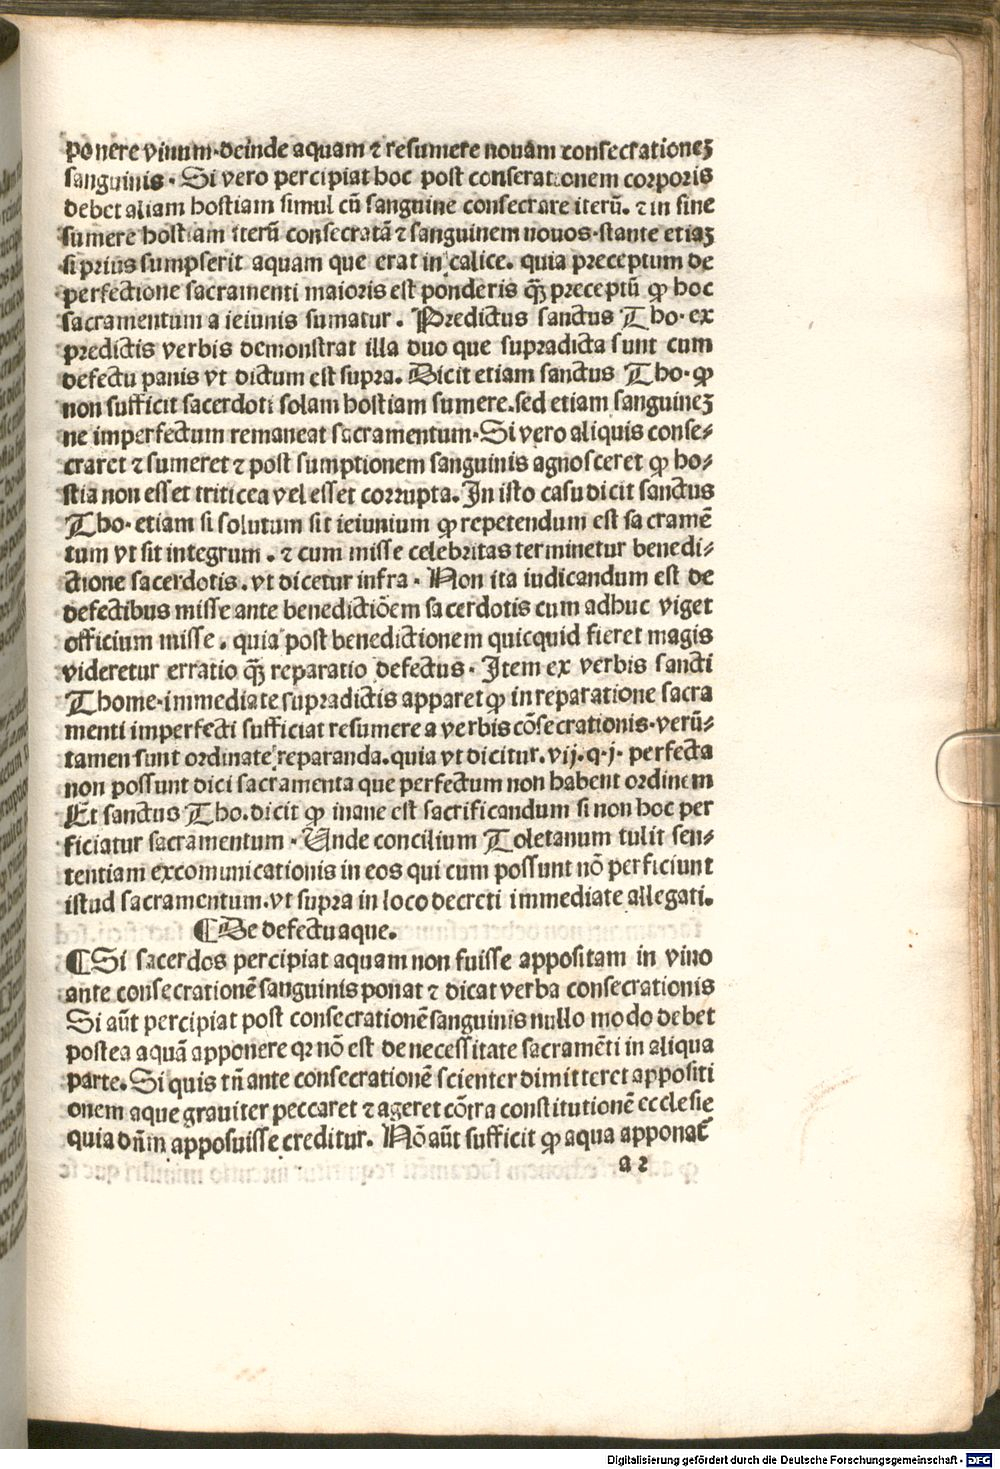 ponere vinum·deinde aquam ⁊ resumere nouam consecrationeꝫ
sanguinis · Si vero percipiat hoc post conserationem corporis
debet aliam hostiam simul cū sanguine consecrare iterū. ⁊ in fine
sumere hostiam iterū consecratā ⁊ sanguinem nouos·stante etiaꝫ
si prius sumpserit aquam que erat in calice. quia preceptum de
perfectione sacramenti maioris est ponderis qꝫ̄ preceptū ꝙ hoc
sacramentum a ieiunis sumatur. Predictus sanctus Tho·ex
predictis verbis demonstrat illa duo que supradicta sunt cum
defectu panis vt dictum est supra. Dicit etiam sanctus Tho·ꝙ
non sufficit sacerdoti solam hostiam sumere.sed etiam sanguineꝫ
ne imperfectum remaneat sacramentum·Si vero aliquis conse⸗
craret ⁊ sumeret ⁊ post sumptionem sanguinis agnosceret ꝙ ho⸗
stia non esset triticea vel esset corrupta. In isto casu dicit sanctus
Tho·etiam si solutum sit ieiunium ꝙ repetendum est sacramē
tum vt sit integrum. ⁊ cum misse celebritas terminetur benedi⸗
ctione sacerdotis.vt dicetur infra· Non ita iudicandum est de
defectibus misse ante benedictiōem sacerdotis cum adhuc viget
officium misse. quia post benedictionem quicquid fieret magis
videretur erratio qꝫ̄ reparatio defectus· Item ex verbis sancti
Thome·immediate supradictis apparet ꝙ in reparatione sacra
menti imperfecti sufficiat resumere a verbis cōsecrationis·verū⸗
tamen sunt ordinate reparanda.quia vt dicitur.vij.q·j· perfecta
non possunt dici sacramenta que perfectum non habent ordinem
Et sanctus Tho.dicit ꝙ inane est sacrificandum si non hoc per
ficiatur sacramentum · Unde concilium Toletanum tulit sen⸗
tentiam excomunicationis in eos qui cum possunt nō perficiunt
istud sacramentum.vt supra in loco decreti immediate allegati.
¶ De defectu aque.
¶ Si sacerdos percipiat aquam non fuisse appositam in vino
ante consecrationē sanguinis ponat ⁊ dicat verba consecrationis
Si aūt percipiat post consecrationē sanguinis nullo modo debet
postea aquā apponere qꝛ nō est de necessitate sacramēti in aliqua
parte. Si quis tn̄ ante consecrationē scienter dimitteret appositi
onem aque grauiter peccaret ⁊ ageret cōtra constitutionē ecclesie
quia dn̄m apposuisse creditur. Nō aūt sufficit ꝙ aqua apponat̄
a 2
Digitalisierung gefördert durch die Deutsche Forschungsgemeinschaft - DFG